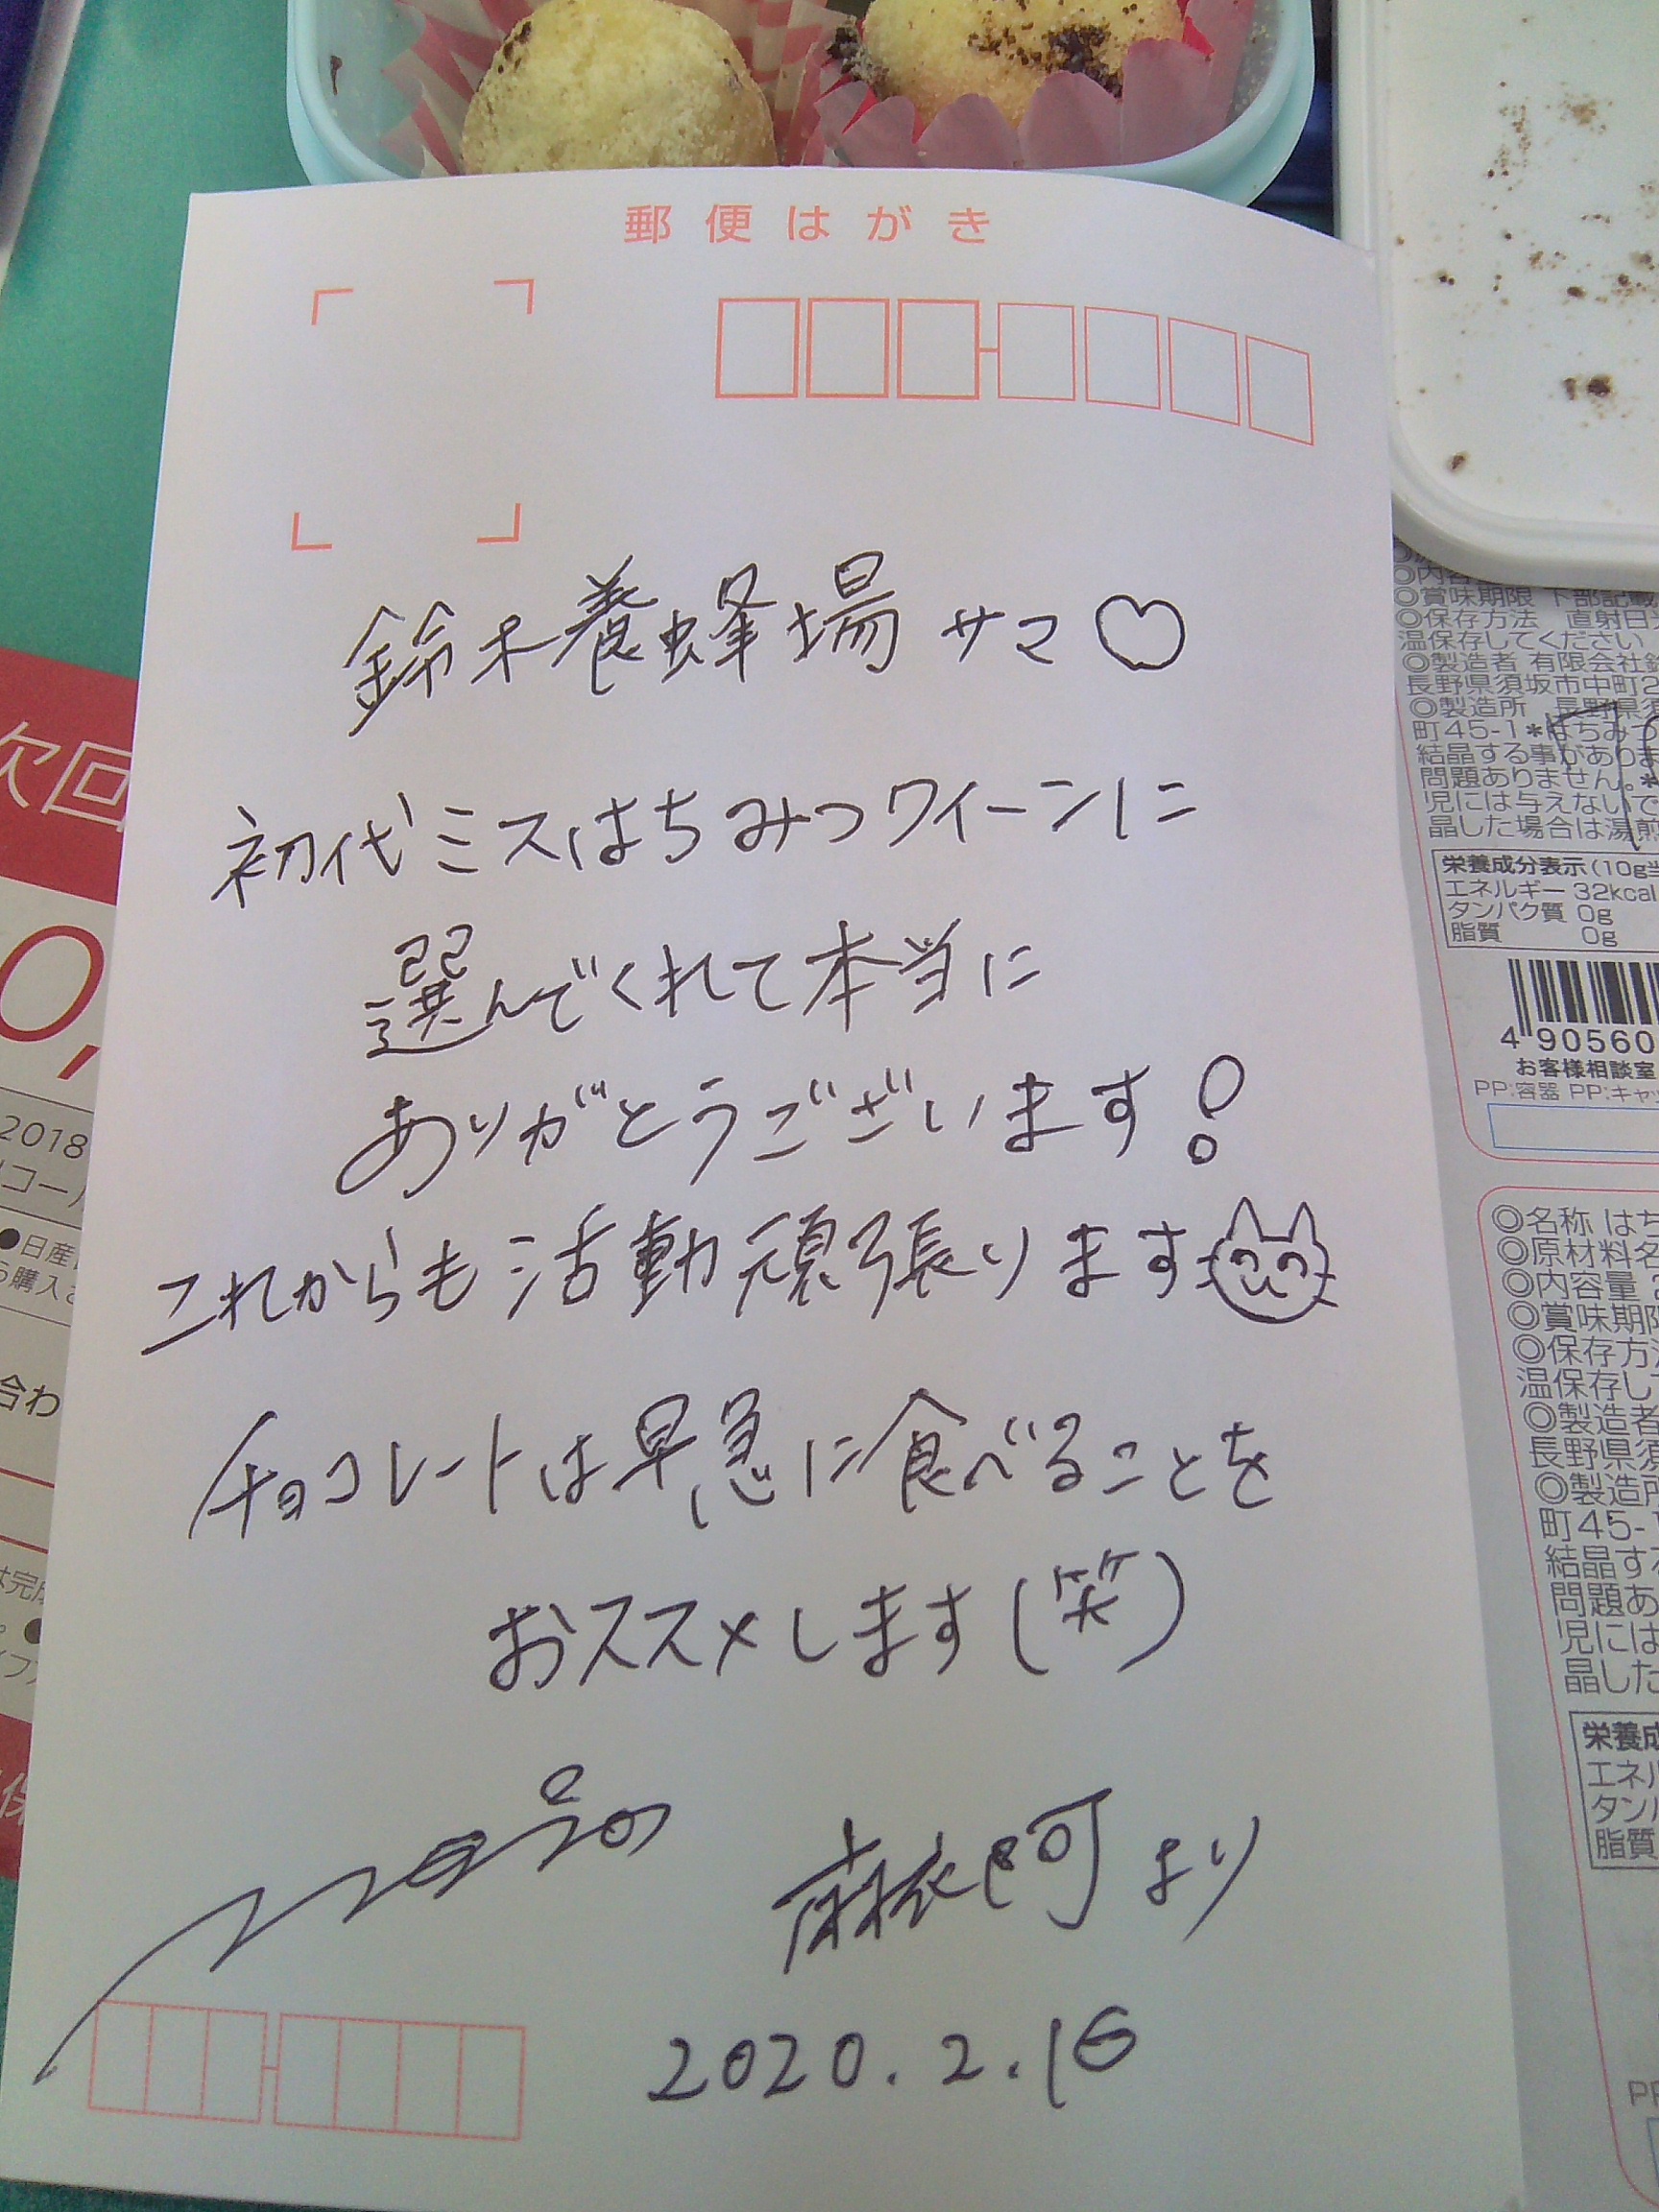 郵便はがき
鈴木養蜂場サマ♡
初代ミスはちみつクイーンに
選んでくれて本当に
ありがとうございます!
これからも活動頑張ります
チョコレートは早急に食べることを
おススメします(笑)
麻衣阿より
2020.2.16
次回
0,
2018
●日産
購入
合わ
◎内容
◎賞味期限 下部記載
◎保存方法 直射日
温保存してください
◎製造者 有限会社
長野県須坂市中町2
◎製造所 長野県須
町45-1*はちみつ
結晶する事がありま
問題ありません。*
児には与えないで
晶した場合は湯煎
栄養成分表示(10g当
エネルギー 32kcal
タンパク質 0g
脂質 0g
4 90560
お客様相談室
PP:容器 PP:キャッ
◎名称 はち
◎原材料名
◎内容量 2
◎賞味期限
◎保存方法
温保存して
◎製造者
長野県須
◎製造所
町45-1
結晶する
問題あ
児には
晶した
栄養成
エネル
タンパ
脂質
PP